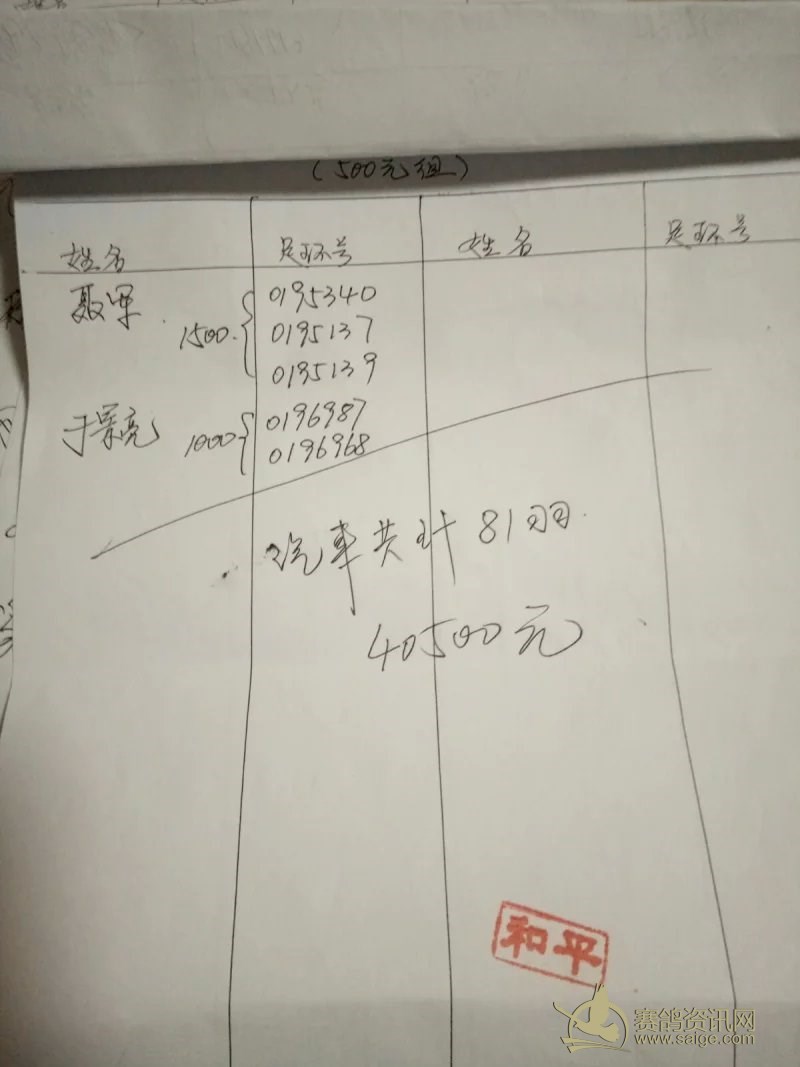 (500元组)
姓名 足环号 姓名 足环号
聂军 1500. 0195340
0195137
0195139
于荣亮 1000 0196987
0196968
汽车共计 81羽.
40500元
和平
赛鸽资讯网
www.saige.com